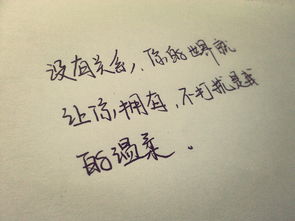 没有关系，你的世界就
让你拥有，不打扰是我
的温柔。